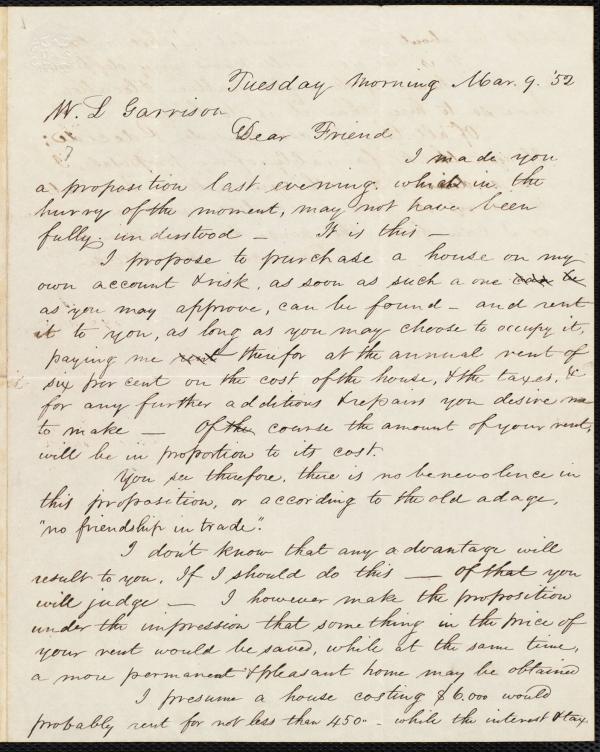 Tuesday Morning Mar. 9. '52
W. L Garrison
Dear Friend
I made you
a proposition last evening. which in the
hurry of the moment, may not have been
fully. understood — It is this —
I propose to purchase a house on my
own account & risk, as soon as such a one can be
as you may approve, can be found — and rent
it to you, as long as you may choose to occupy it,
paying me rent therefor at the annual rent of
six per cent on the cost of the house, & the taxes, &
for any further additions & repairs you desire me
to make — Of the course the amount of your rent,
will be in proportion to its cost.
You see therefore, there is no benevolence in
this proposition, or according to the old adage,
"no friendship in trade".
I don't know that any advantage will
result to you, If I should do this — of that you
will judge — I however make the proposition
under the impression that something in the price of
your rent would be saved, while at the same time,
a more permanent & pleasant home may be obtained
I presume a house costing $6.000 would
probably rent for not less than 450 - while the interest & tax